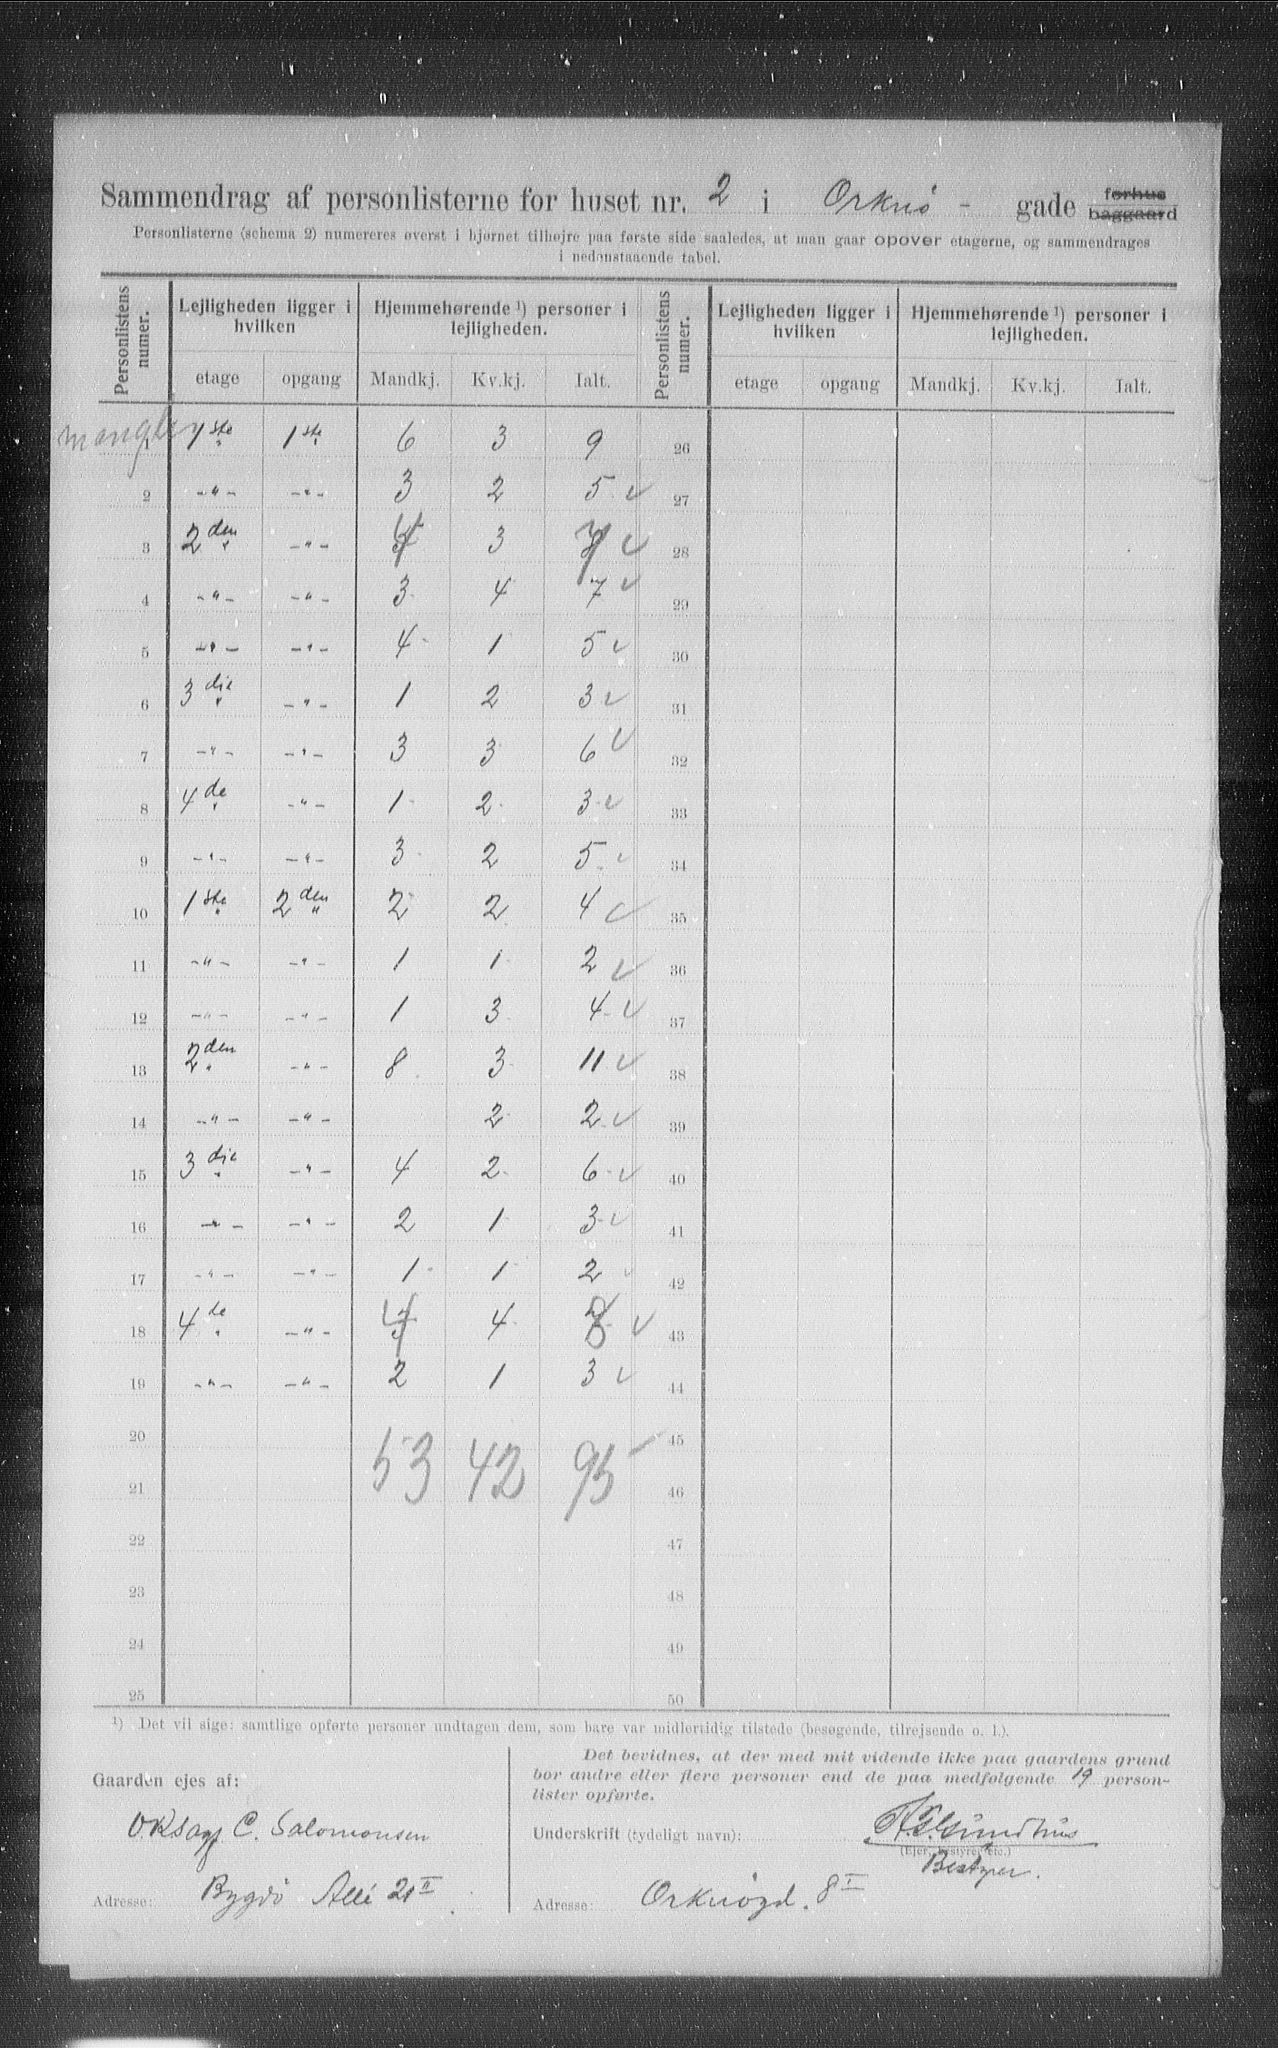 Sammendrag af personlisterne for huset nr. 2 i Orknö - gade forhus baggaard
Personlisterne (schema 2) numereres øverst i hjørnet tilhøjre paa første side saaledes, at man gaar opover etagerne, og sammendrages
i nedenstaaende tabel.
Personlistens numer. Lejligheden ligger i hvilken Hjemmehørende ¹) personer i lejligheden. Personlistens numer. Lejligheden ligger i hvilken Hjemmehørende ¹) personer i lejligheden.
etage opgang Mandkj. Kv.kj. Ialt. etage opgang Mandkj. Kv.kj. Ialt.
mangler 1 1ste 1ste 6 3 9 26
2 -"- -"- 3 2 5 ✓ 27
3 2den -"- 4 3 7 ✓ 28
4 -"- -"- 3 4 7 ✓ 29
5 -"- -"- 4 1 5 ✓ 30
6 3die -"- 1 2 3 ✓ 31
7 -"- -"- 3 3 6 ✓ 32
8 4de -"- 1 2 3 ✓ 33
9 -"- -"- 3 2 5 ✓ 34
10 1ste 2den 2 2 4 ✓ 35
11 -"- -"- 1 1 2 ✓ 36
12 -"- -"- 1 3 4 ✓ 37
13 2den -"- 8 3 11 ✓ 38
14 -"- -"- 2 2 ✓ 39
15 3die -"- 4 2 6 ✓ 40
16 -"- -"- 2 1 3 ✓ 41
17 -"- -"- 1 1 2 ✓ 42
18 4de -"- 4 4 8 ✓ 43
19 -"- -"- 2 1 3 ✓ 44
20 53 42 95 45
21 46
22 47
23 48
24 49
25 50
¹) Det vil sige: samtlige opførte personer undtagen dem, som bare var midlertidig tilstede (besøgende, tilrejsende o. l.).
Gaarden ejes af:
O.K.Sagf C. Salomonsen
Adresse: Bygdö Allé 21 II
Det bevidnes, at der med mit vidende ikke paa gaardens grund
bor andre eller flere personer end de paa medfølgende 19 person-
lister opførte.
Underskrift (tydeligt navn):
(Ejer, bestyrer etc.)
Bestyrer.
Adresse: Orknögd. 8 I